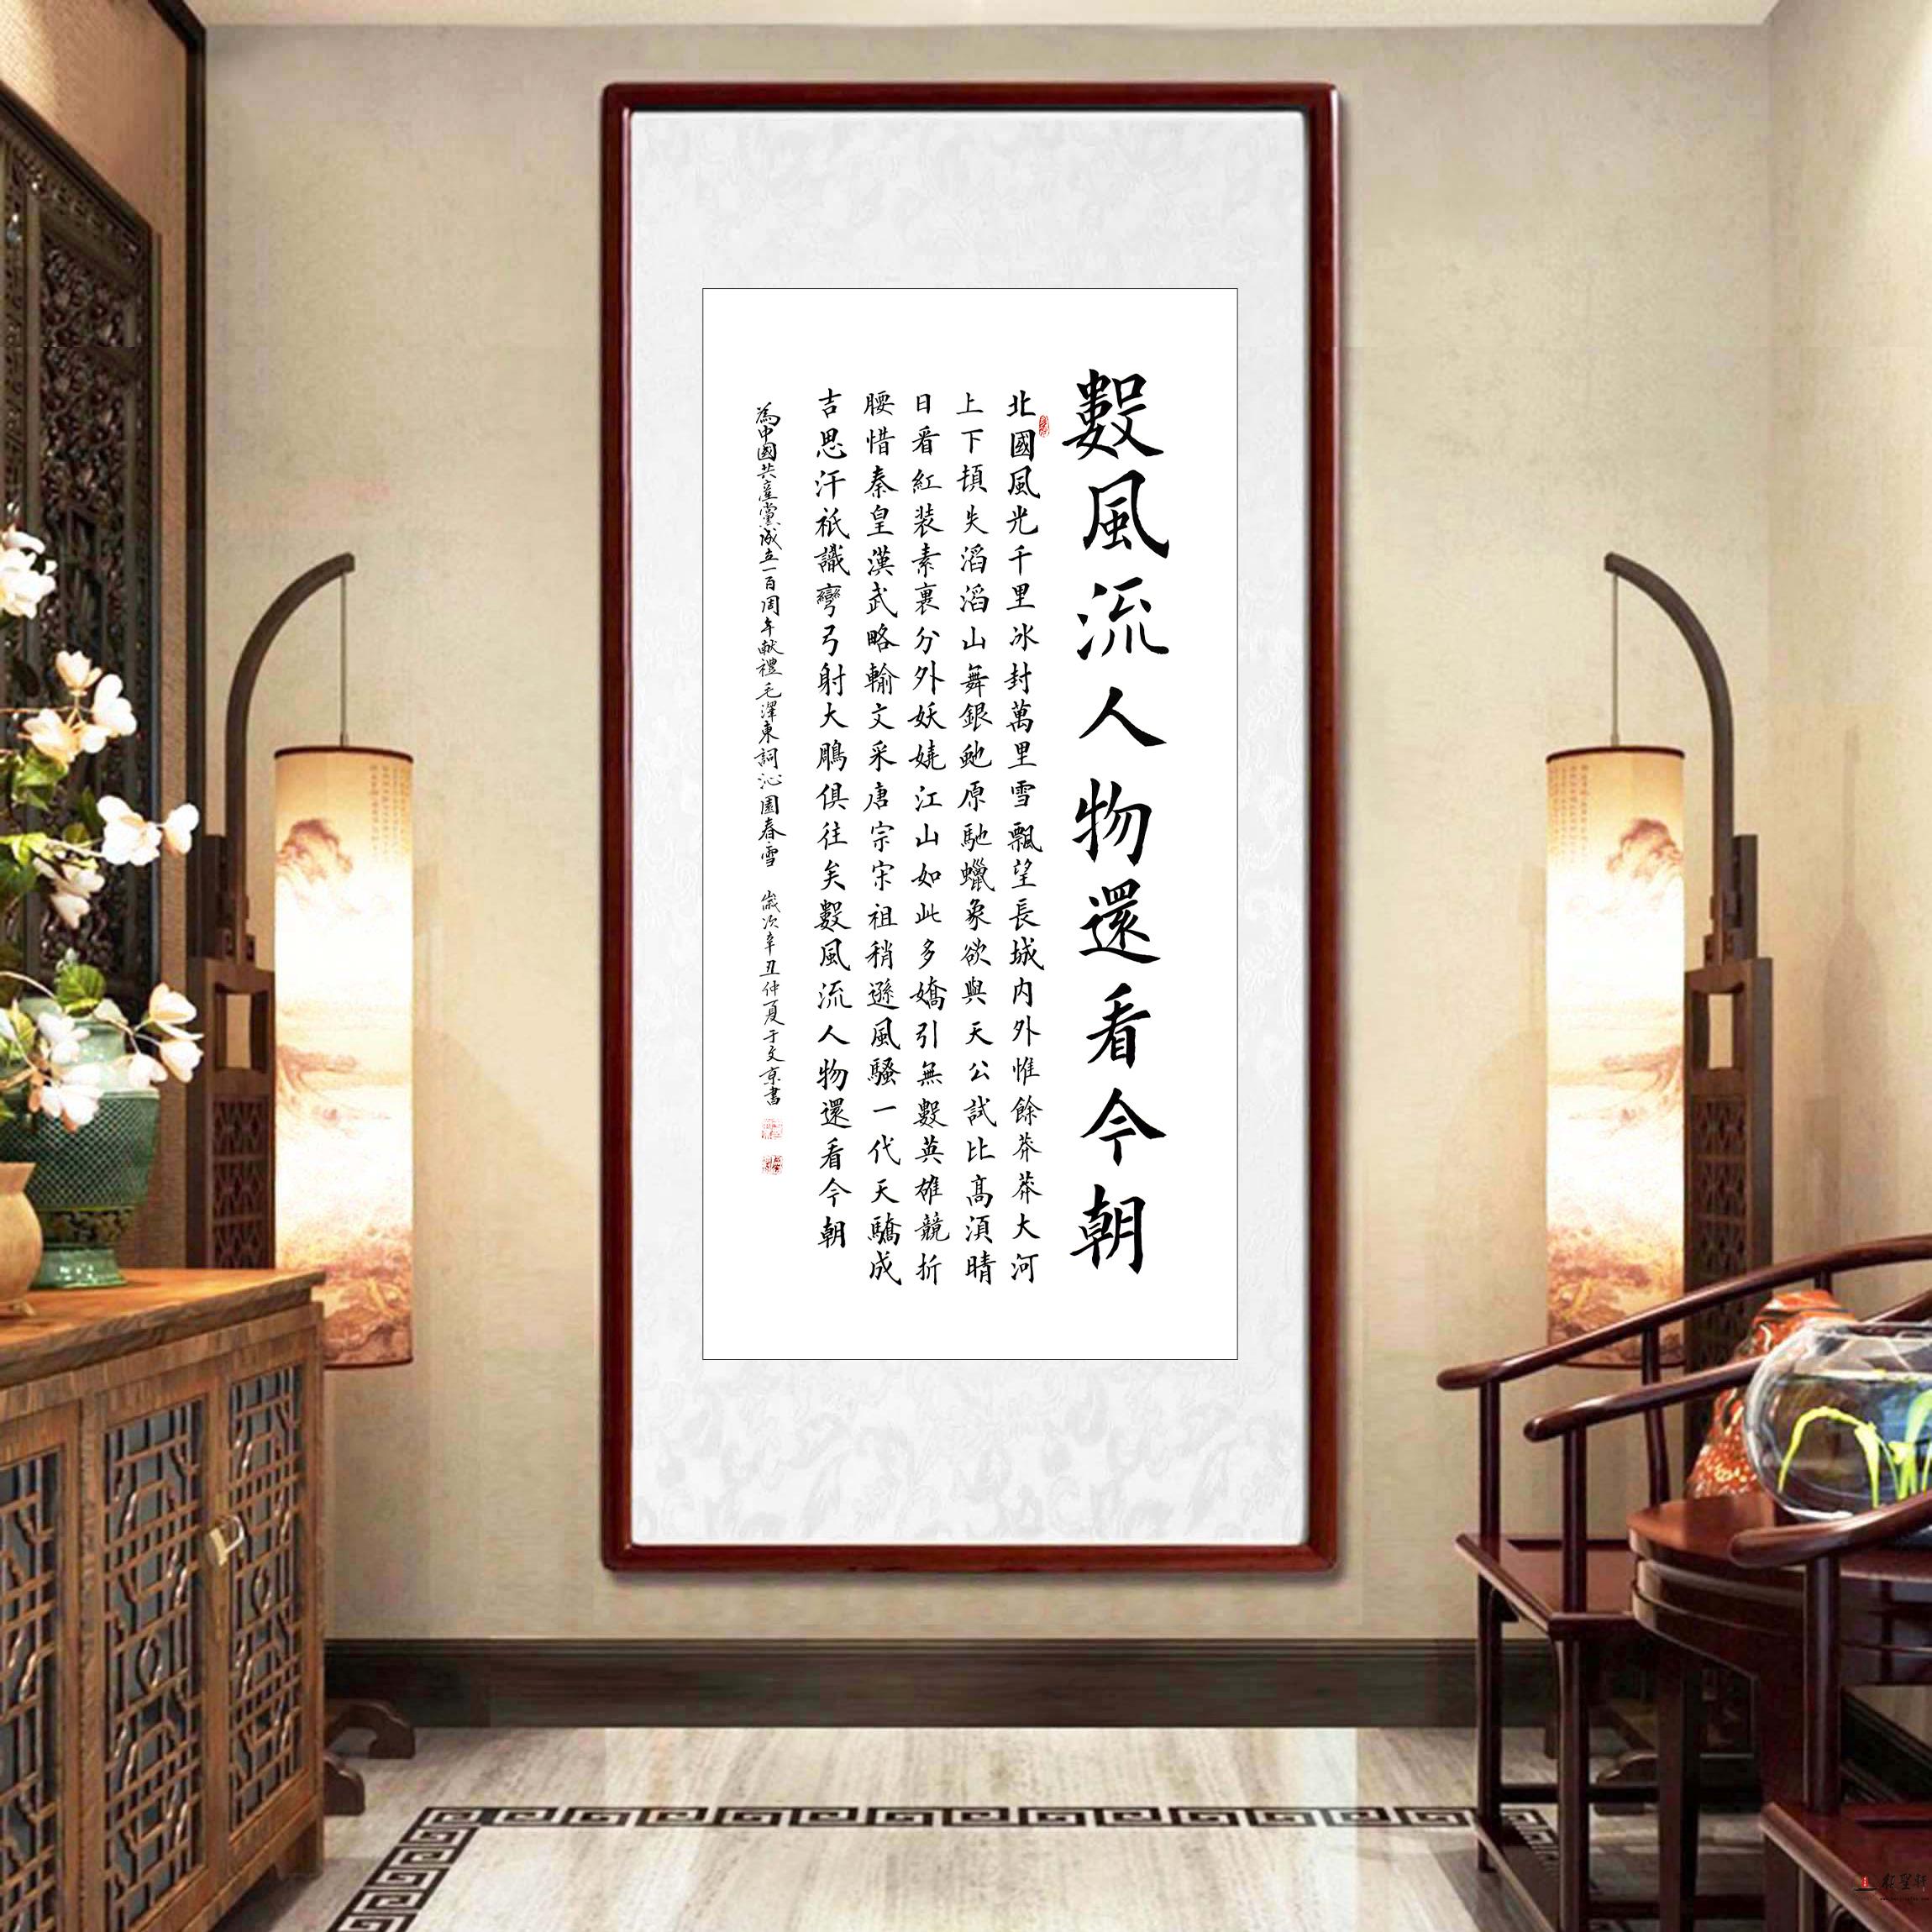 數風流人物還看今朝
北國風光千里冰封萬里雪飄望長城内外惟餘莽莽大河
上下頓失滔滔山舞銀虵原馳蠟象欲與天公試比高須晴
日看紅装素裹分外妖嬈江山如此多嬌引無數英雄競折
腰惜秦皇漢武略輸文采唐宗宋祖稍遜風騷一代天驕成
吉思汗祇識彎弓射大鵰俱往矣數風流人物還看今朝
為中國共產黨成立一百周年献禮毛澤東詞沁園春雪 歲次辛丑仲夏于文京書